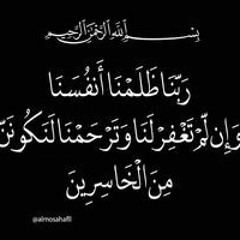 بِسْمِ اللَّهِ الرَّحْمَٰنِ الرَّحِيمِ
رَبَّنَا ظَلَمْنَا أَنفُسَنَا
وَإِن لَّمْ تَغْفِرْ لَنَا وَتَرْحَمْنَا لَنَكُونَنَّ
مِنَ الْخَاسِرِينَ
@almosahafll